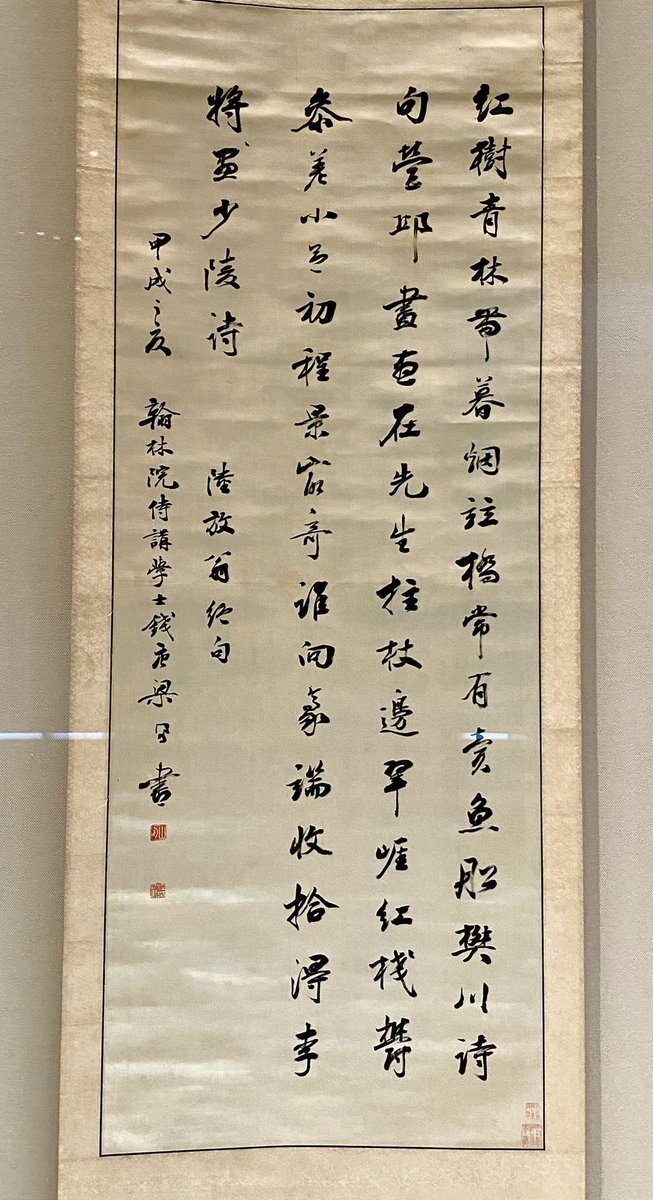 红樹青林帶暮烟竝橋常有賣魚船樊川詩
句營邱畫盡在先生拄杖邊翠崖红棧鬱
參差小益初程景最奇誰向豪端收拾得李
将畫少陵詩 陸放翁絕句
甲戌之夏 翰林院侍講學士錢唐梁同書